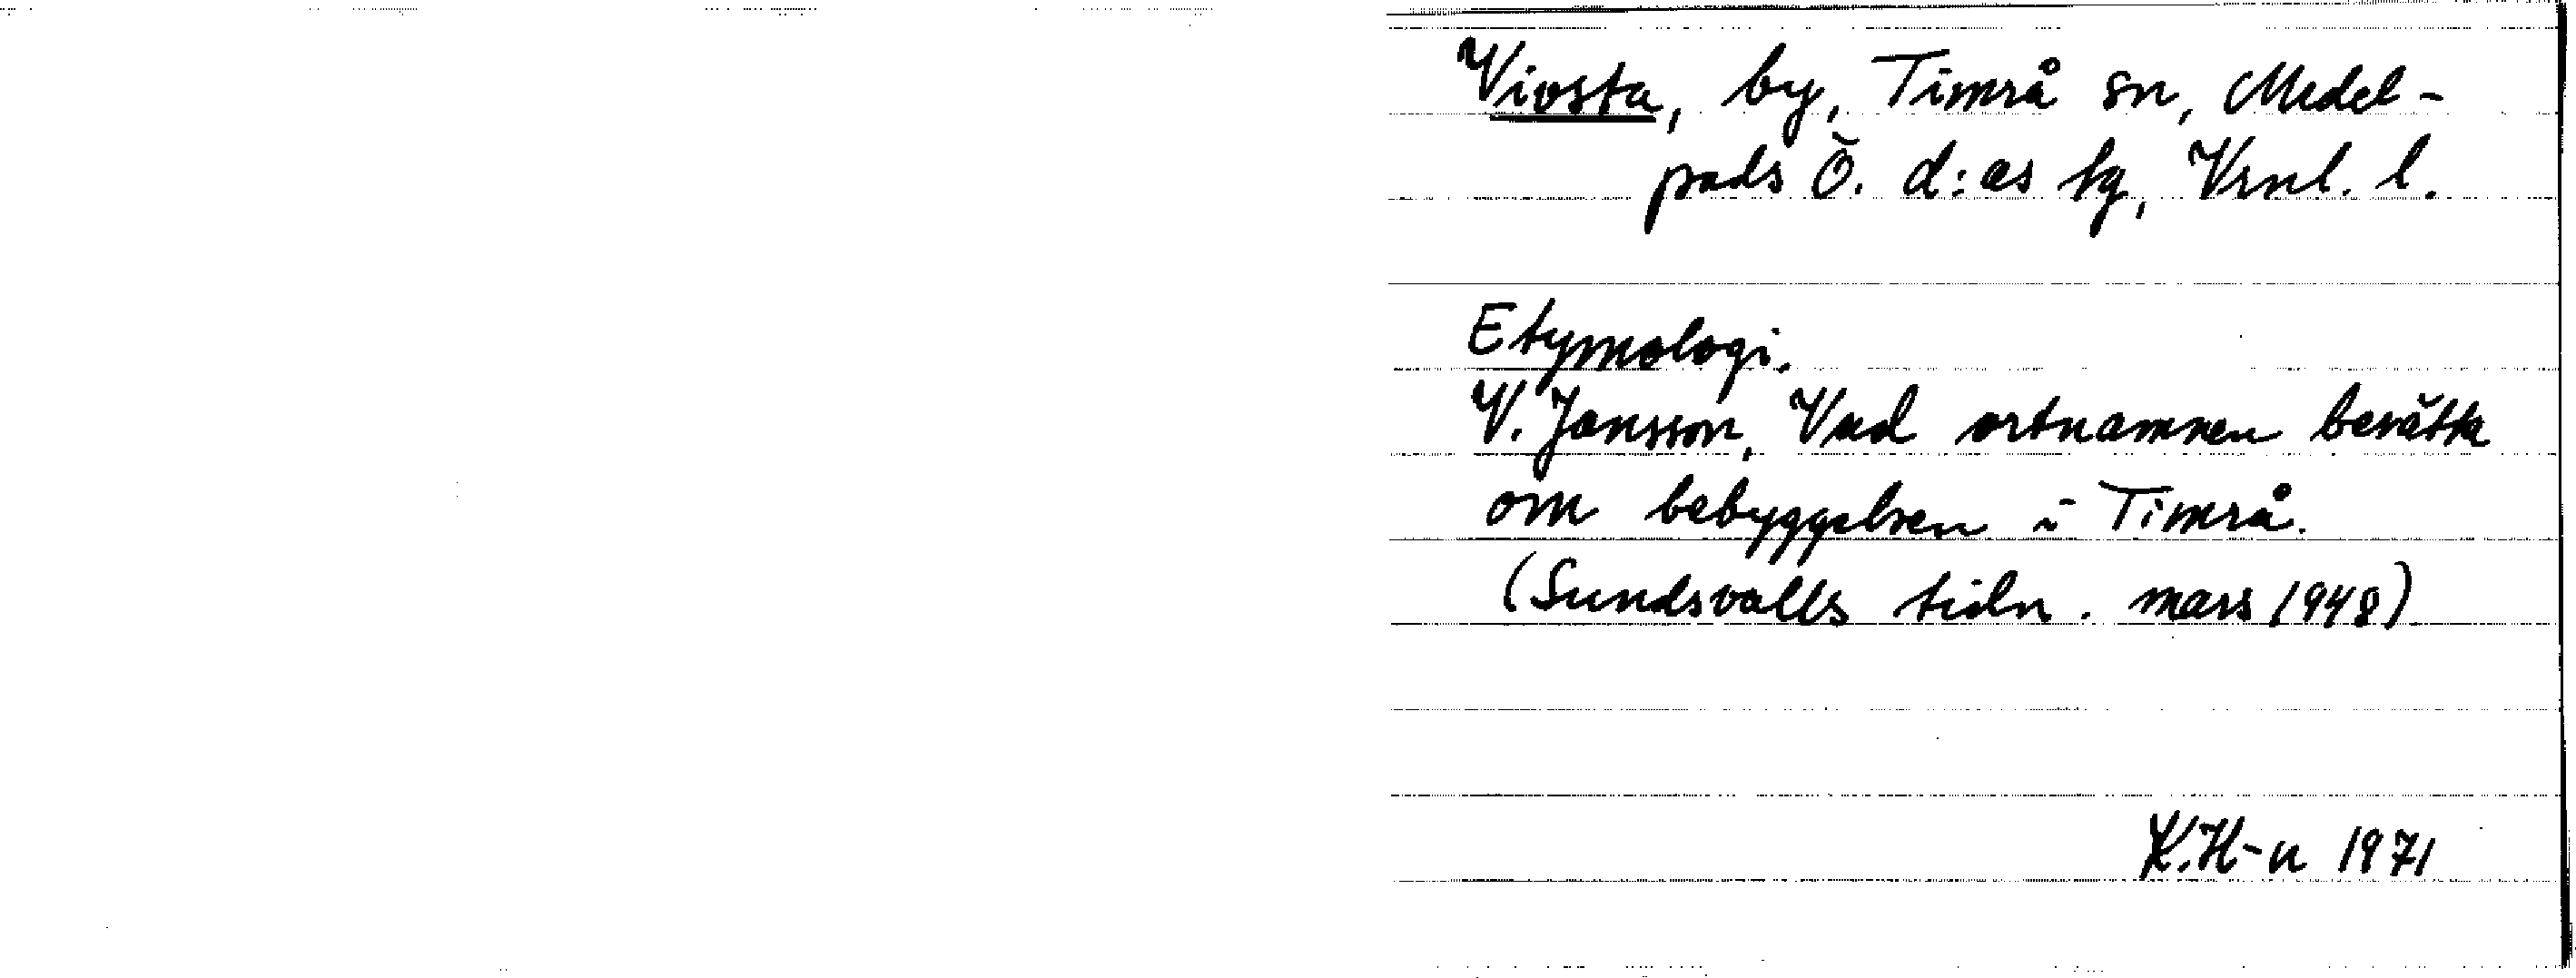 Vivsta, by, Timrå sn, Medel-
pads Ö. d:as tg, Vrnl. l.
Etymologi.
V. Jansson, Vad ortnamnen berätta
om bebyggelsen i Timrå.
(Sundsvalls tidn. mars 1948)
K.H-n 1971